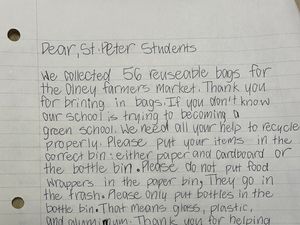 Dear, St. Peter Students
We collected 56 reuseable bags for
the Olney farmers market. Thank you
for brining in bags. If you don't know
our school is trying to becoming a
green school. We need all your help to recycle
properly. Please put your items in the
correct bin: either paper and cardboard or
the bottle bin. Please do not put food
wrappers in the paper bin, They go in
the trash. Please only put bottles in the
bottle bin. That means glass, plastic,
and aluminum. Thank you for helping